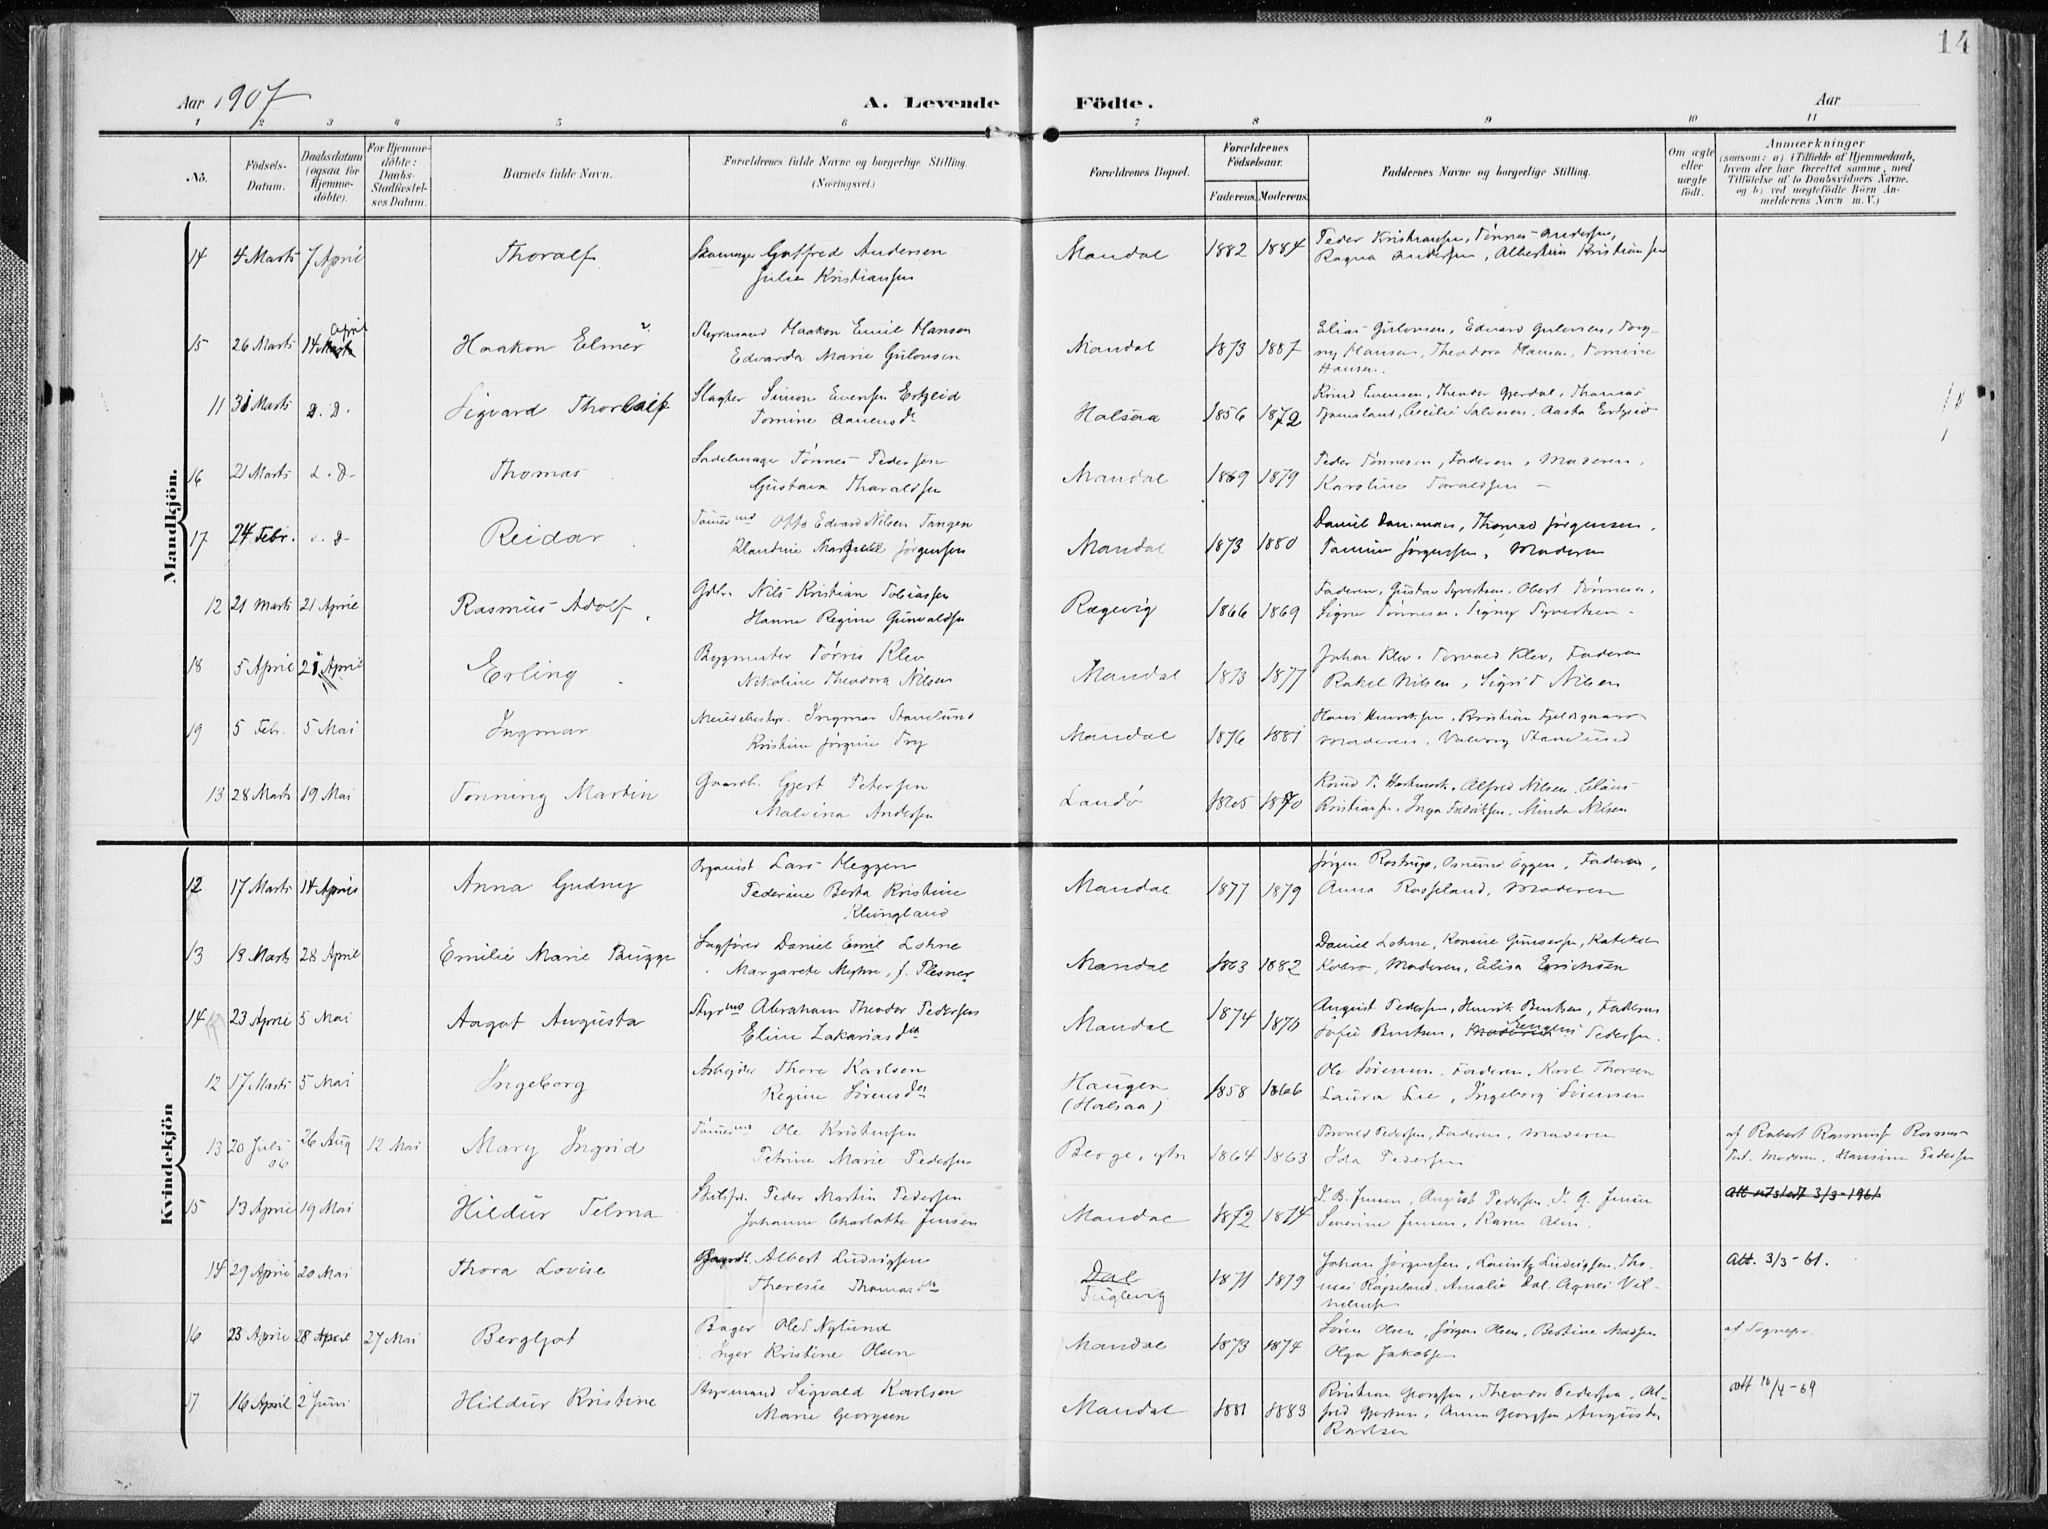 14
Aar 1907 A. Levende Födte. Aar
1 2 3 4 5 6 7 8 9 10 11
No. Födsels-Datum. Daabsdatum (ogsaa for Hjemmedöbte). For Hjemmedöbte: Daabs-Stadfæstelses Datum. Barnets fulde Navn. Forældrenes fulde Navne og borgerlige Stilling. (Næringsvei.) Forældrenes Bopæl. Forældrenes Födselsaar. Faderens. Moderens. Faddernes Navne og borgerlige Stilling. Om ægte eller uægte födt. Anmærkninger (saasom: a) i Tilfælde af Hjemmedaab, hvem der har forrettet samme, med Tilföielse af to Daabsvidners Navne, og b) ved uægtefödte Börn Anmelderens Navn m. V.)
Mandkjön.
14 4 Marts 7 April Thoralf Gotfred Andersen Mandal 1882 1884 Peder Kristiansen, Tønnes Andersen,
Julie Kristiansen Ragna Andersen, Kristiansen
15 26 Marts 14 April Haakon Elmer Styrmand Haakon Emil Hansen Mandal 1873 1887 Elias Gulovsen, Edvard Gulovsen, Torg-
Edvarda Marie Gulovsen ny Hansen, Theodora Hansen, Tomine
Hansen.
11 31 Marts d. D. Sigvard Thorleif Slagter Simon Evensen Halsaa 1856 1872 Knud Evensen, Theodor Gjerdal, Thomas
Tomine Aanensdr Tjomsland, Cecilie Salvesen, Aasta
16 21 Marts d. D. Thomas Sadelmager Tønnes Pedersen Mandal 1869 1879 Peder Tønnesen, Faderen, Moderen,
Gustava Tharaldsen Karoline Taraldsen
17 24 Febr. d. D. Reidar Tømermd Otto Edvard Nilsen Tangen Mandal 1873 1880 Daniel Danman, Thomas Jørgensen,
Klandine Jørgensen Tomine Jørgensen, Moderen
12 21 Marts 21 April Rasmus Adolf Gdbr. Nils Kristian Tobiassen Rægevig 1866 1869 Faderen, Gustav Syvertsen, Obert Tønnesen,
Hanne Regine Gunvaldsen Signe Tønnesen, Signy Syvertsen.
18 5 April 21 April Erling Bygmester Tørris Klev Mandal 1873 1877 Johan Klev, Torvald Klev, Faderen
Nikoline Theodora Nilsen Rakel Nilsen, Sigrid Nilsen
19 5 Febr. 5 Mai Ingmar Ingmar Stanelund Mandal 1876 1881 Hans Henriksen, Kristian Fjeldsgaard
Kristine Jørgine Try Moderen, Valborg Stanelund
13 28 Marts 19 Mai Tonning Martin Gaardb. Gjert Petersen Landø 1865 1870 Knud T. Alfred Nilsen, Claus
Malvina Andersen Kristians., Inga Fredriksen, Minda Nilsen
Kvindekjön
12 17 Marts 14 April Anna Gudny Organist Lars Heggen Mandal 1877 1879 Jørgen Rostrup, Osmund Eggen, Faderen,
Pederine Berta Kristine Anna Rosseland, Moderen
Klungland
13 13 Marts 28 April Emilie Marie Bugge Sagfører Daniel Emil Lohne Mandal 1863 1882 Daniel Lohne, Konsul Gundersen,
Margarete Myhre, f. Plesner Moderen, Elisa Erichsen
14 23 April 5 Mai Aagot Augusta Styrmd Abraham Theodor Pedersen Mandal 1874 1870 August Pedersen, Henrik Bentsen, Faderen
Eline Zakariasdtr Sofie Bentsen, Pedersen.
12 17 Marts 5 Mai Ingeborg Arbejder Thore Karlsen Haugen 1858 1866 Ole Sørensen, Faderen, Karl Thorsen
Regine Sørensdtr (Halsaa) Laura Lie, Ingeborg Sørensen
13 20 Juli 06 26 Aug 12 Mai Mary Ingrid Tømermd Ole Kristensen Berge, 1864 1863 Torvald Pedersen, Faderen, Moderen af Robert Rasmuss.
Petrine Marie Pedersen Ida Pedersen Moderen, Hansine Pedersen
15 13 April 19 Mai Hildur Telma Skibsfø. Peder Martin Pedersen Mandal 1872 1874 J. B. Jensen, August Pedersen, J. G. Jensen Att utstedt 3/3-1961
Johanne Charlotte Jensen Severine Jensen, Karen
14 29 April 20 Mai Thora Lovise Albert Ludvigsen Dal 1871 1879 Johan Jørgensen, Lauritz Ludvigsen, Tho- Att. 3/3-61.
Theresie Thomasdtr Fuglevig Amalie Dal, Agnes Vil-
helmsen
16 23 April 28 April 27 Mai Bergljot Bager Oled Nylund Mandal 1873 1874 Søren Olsen, Jørgen Olsen, Bertine Madsen af Sognepr.
Inger Kristine Olsen Olga Jakobsen
17 16 April 2 Juni Hildur Kristine Styrmand Sigvald Karlsen Mandal 1881 1883 Kristian Georgsen, Theodor Pedersen, Al- att 16/4-69
Marie Georgsen fred Gjertsen, Anna Georgsen, Augusta
Karlsen